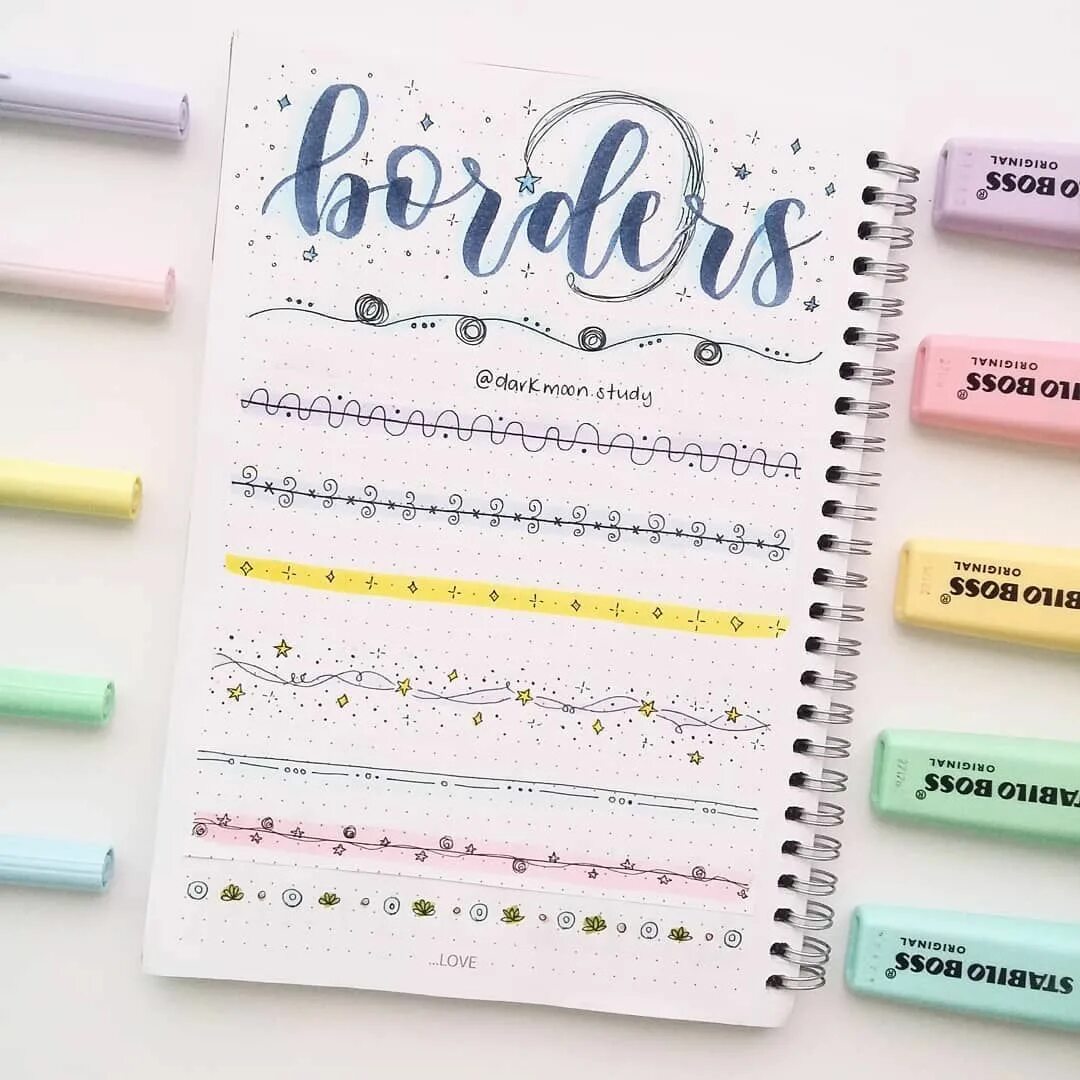 borders
@darkmoon.study
...LOVE
STABILO BOSS
ORIGINAL
®
STABILO BOSS
ORIGINAL
®
STABILO BOSS
ORIGINAL
®
STABILO BOSS
ORIGINAL
®
STABILO BOSS
ORIGINAL
®